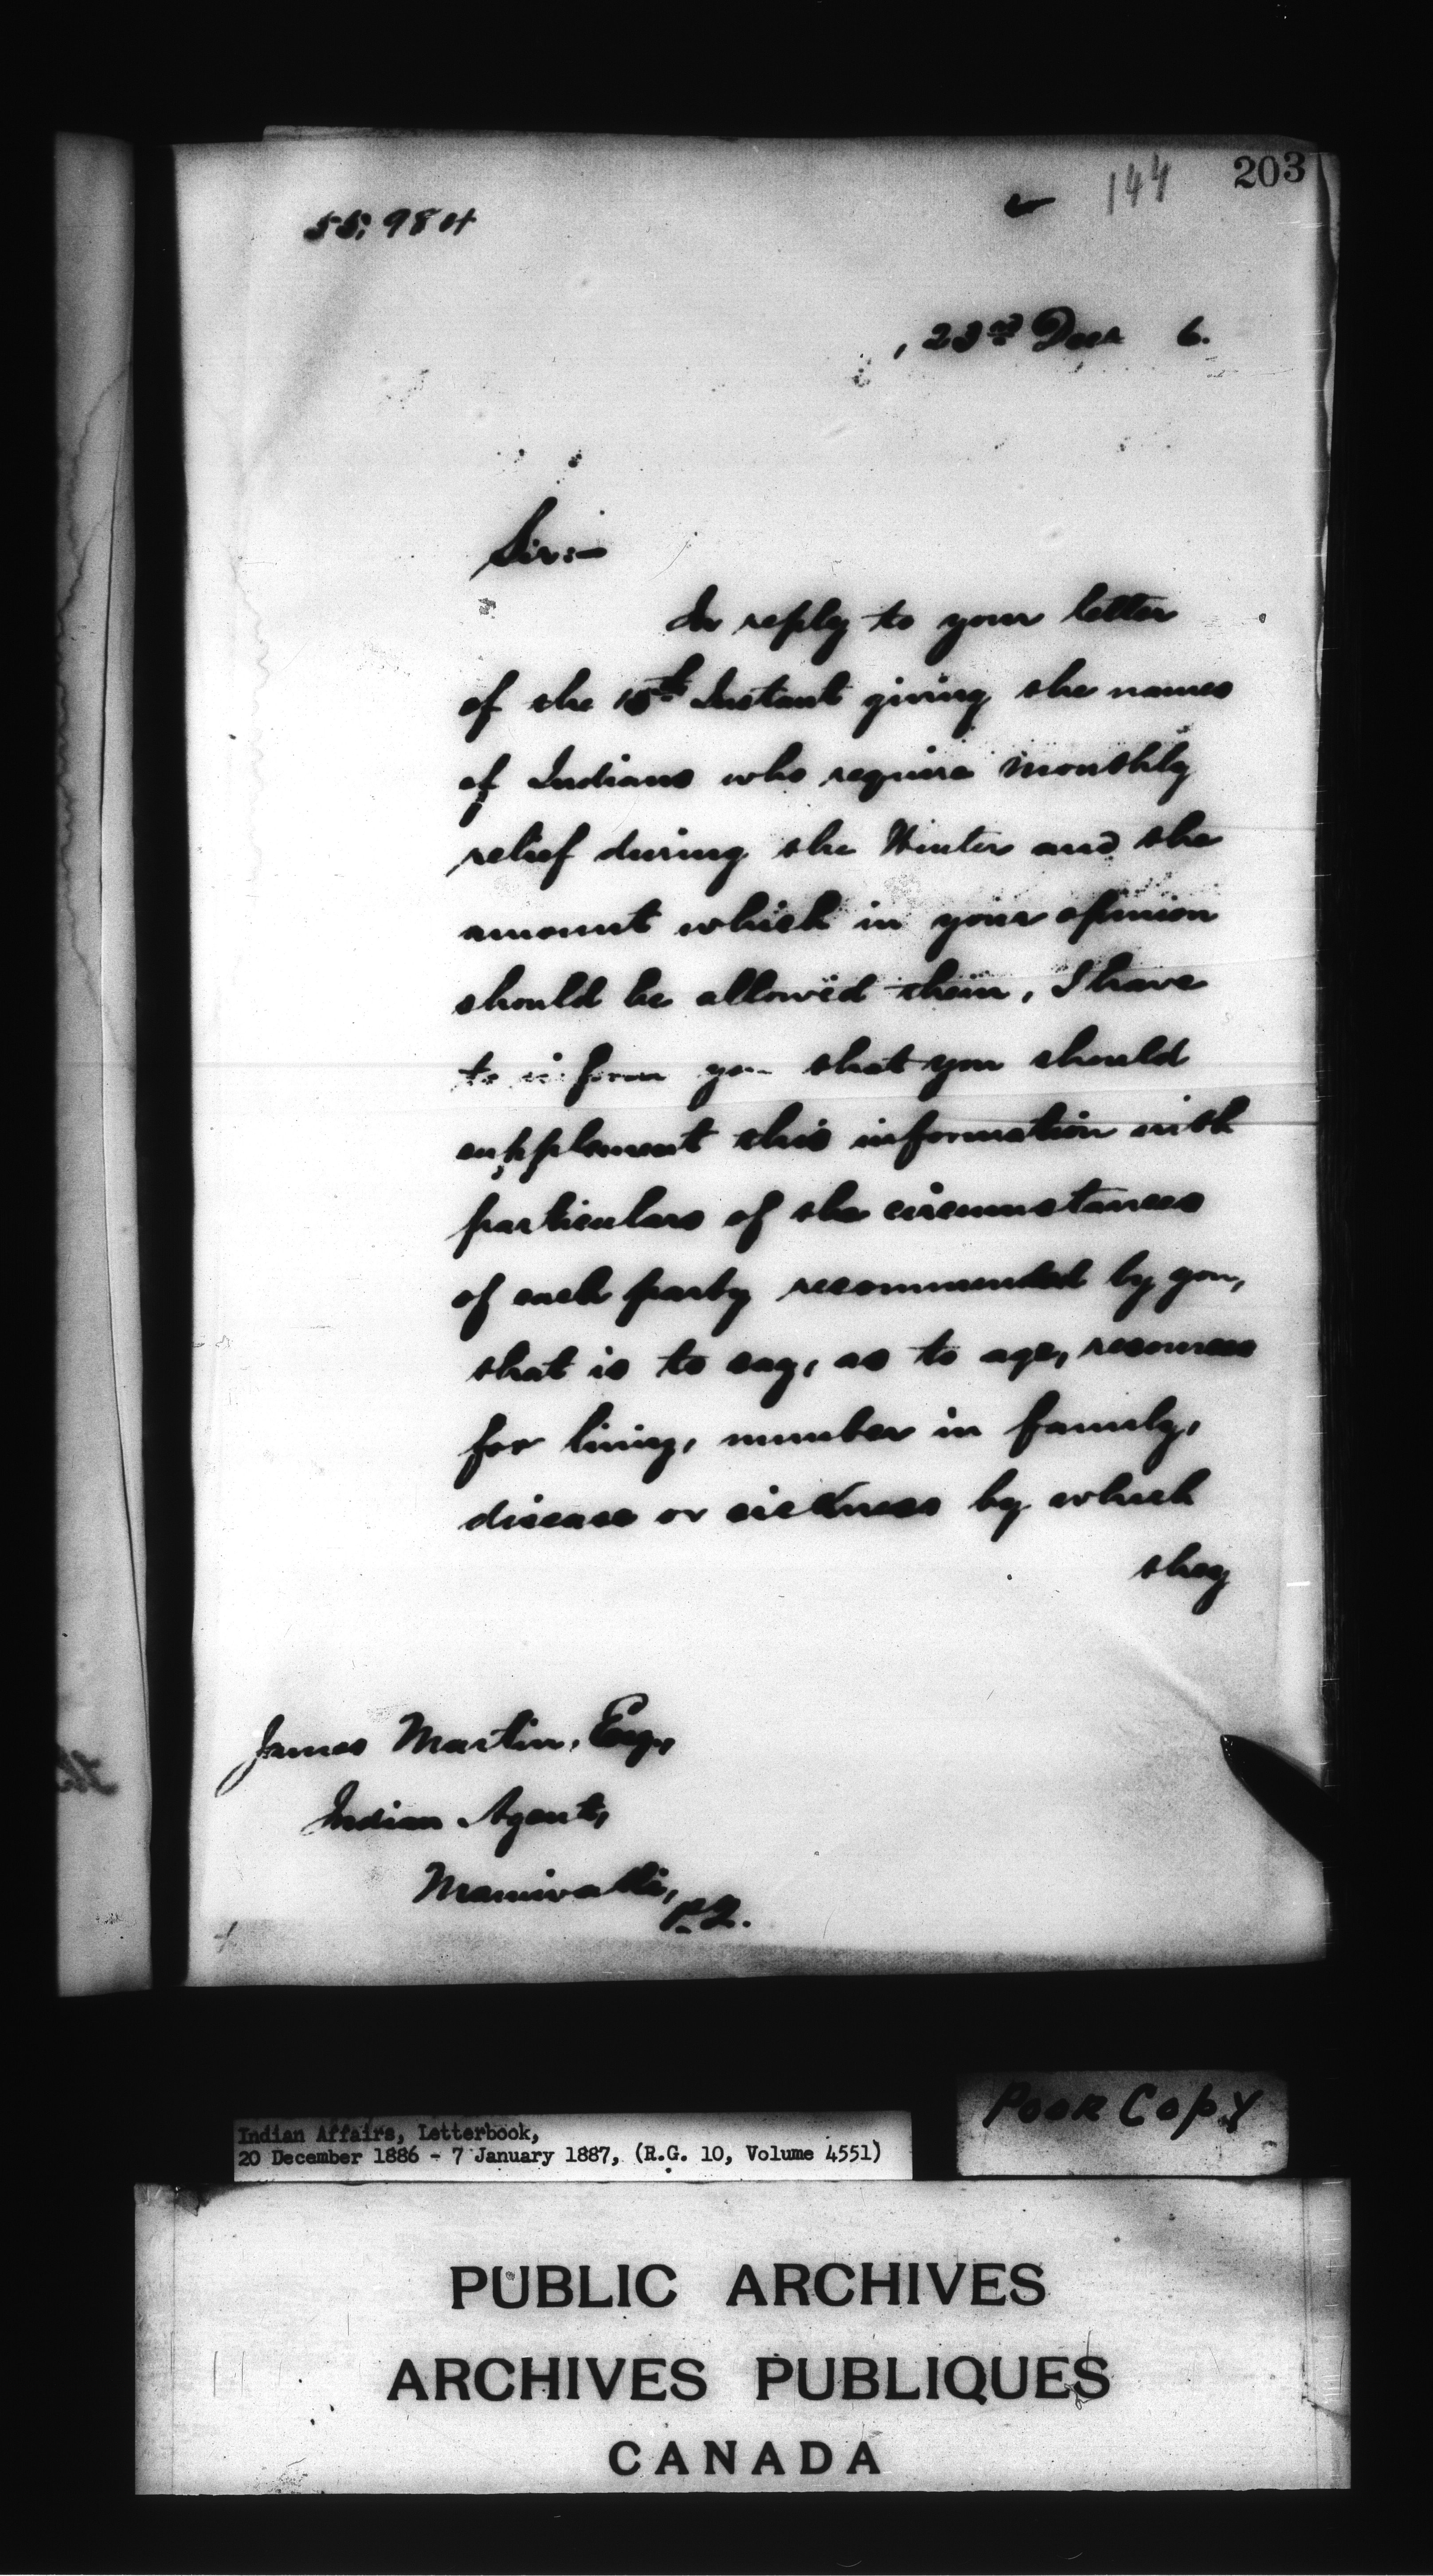 203
144
55,984
, 23rd Decr 6.
Sir:—
In reply to your letter
of the 15th Instant giving the names
of Indians who require monthly
relief during the Winter and the
amount which in your opinion
should be allowed them, I have
to inform you that you should
supplement this information with
particulars of the circumstances
of each party recommended by you,
that is to say, as to age, resources
for living, number in family,
disease or sickness by which
they
James Martin, Esq.,
Indian Agent,
Maniwaki,
P.Q.
POOR COPY
Indian Affairs, Letterbook,
20 December 1886 - 7 January 1887, (R.G. 10, Volume 4551)
PUBLIC ARCHIVES
ARCHIVES PUBLIQUES
CANADA